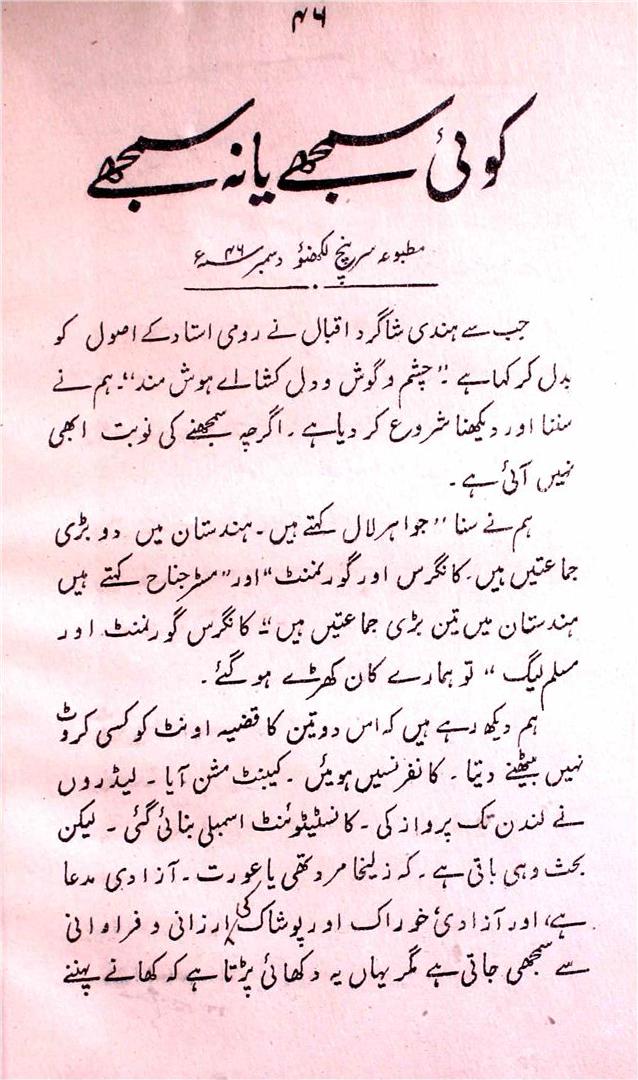 ۴۶
کوئی سمجھے یا نہ سمجھے
مطبوعہ سرپنچ لکھنؤ دسمبر ۴۶ء
جب سے ہندی شاگرد اقبال نے رومی استاد کے اصول کو
بدل کر کہا ہے ۔ "چشم و گوش و دل کشا اے ہوش مند"۔ ہم نے
سننا اور دیکھنا شروع کر دیا ہے ۔ اگرچہ سمجھنے کی نوبت ابھی
نہیں آئی ہے ۔
ہم نے سنا "جواہر لال کہتے ہیں ۔ ہندستان میں دو بڑی
جماعتیں ہیں ۔ کانگرس اور گورنمنٹ" اور "مسٹر جناح کہتے ہیں
ہندستان میں تین بڑی جماعتیں ہیں ۔ کانگرس گورنمنٹ اور
مسلم لیگ" تو ہمارے کان کھڑے ہو گئے ۔
ہم دیکھ رہے ہیں کہ اس دو تین کا قضیہ اونٹ کو کسی کروٹ
نہیں بیٹھنے دیتا ۔ کانفرنسیں ہوئیں ۔ کیبنٹ مشن آیا ۔ لیڈروں
نے لندن تک پرواز کی ۔ کانسٹیٹوئنٹ اسمبلی بنائی گئی ۔ لیکن
بحث وہی باقی ہے ۔ کہ زلیخا مرد تھی یا عورت ۔ آزادی مدعا
ہے، اور آزادئ خوراک اور پوشاک کی ارزانی و فراوانی
سے سمجھی جاتی ہے مگر یہاں یہ دکھائی پڑتا ہے کہ کھانے پہننے